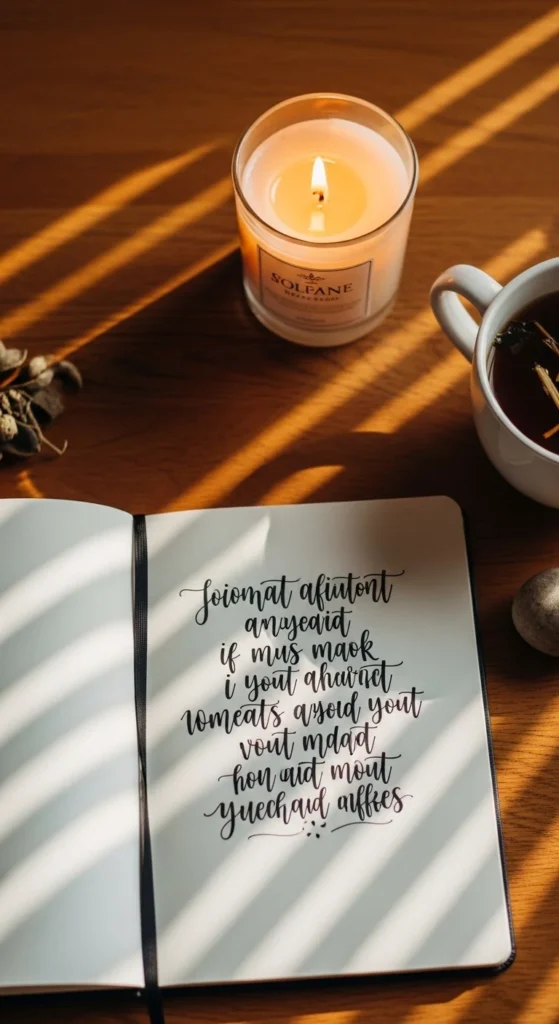 SOLFANE
Joiomat afiutont
anyeaid
if mus maok
i yout ahavret
vomeats ayoid yout
vout mdad
hon aid mout
yuechaid aiffes